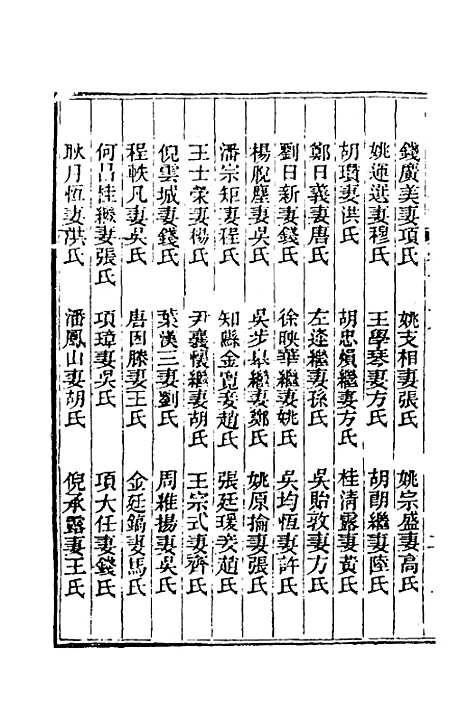 錢廣美妻項氏　姚支相妻張氏　姚宗盛妻高氏
姚運選妻穆氏　王學琴妻方氏　胡朝繼妻陸氏
胡瓚妻洪氏　胡忠熉繼妻方氏　桂清露妻黃氏
鄭日義妻唐氏　左逵繼妻孫氏　吳貽敦妻方氏
劉日新妻錢氏　徐映華繼妻姚氏　吳均恆妻許氏
楊脫塵妻吳氏　吳步 繼妻鄭氏　姚原掄妻張氏
潘宗矩妻程氏　知縣金 妾趙氏　張廷瑗妾趙氏
王士榮妻楊氏　尹襄懷繼妻胡氏　王宗式妻齊氏
倪雲城妻錢氏　葉漢三妻劉氏　周維揚妻吳氏
程軼凡妻吳氏　唐因滕妻王氏　金廷鎬妻馬氏
何昌桂繼妻張氏　項璋妻吳氏　項大任妻錢氏
耿月恆妻洪氏　潘鳳山妻胡氏　倪承露妻王氏